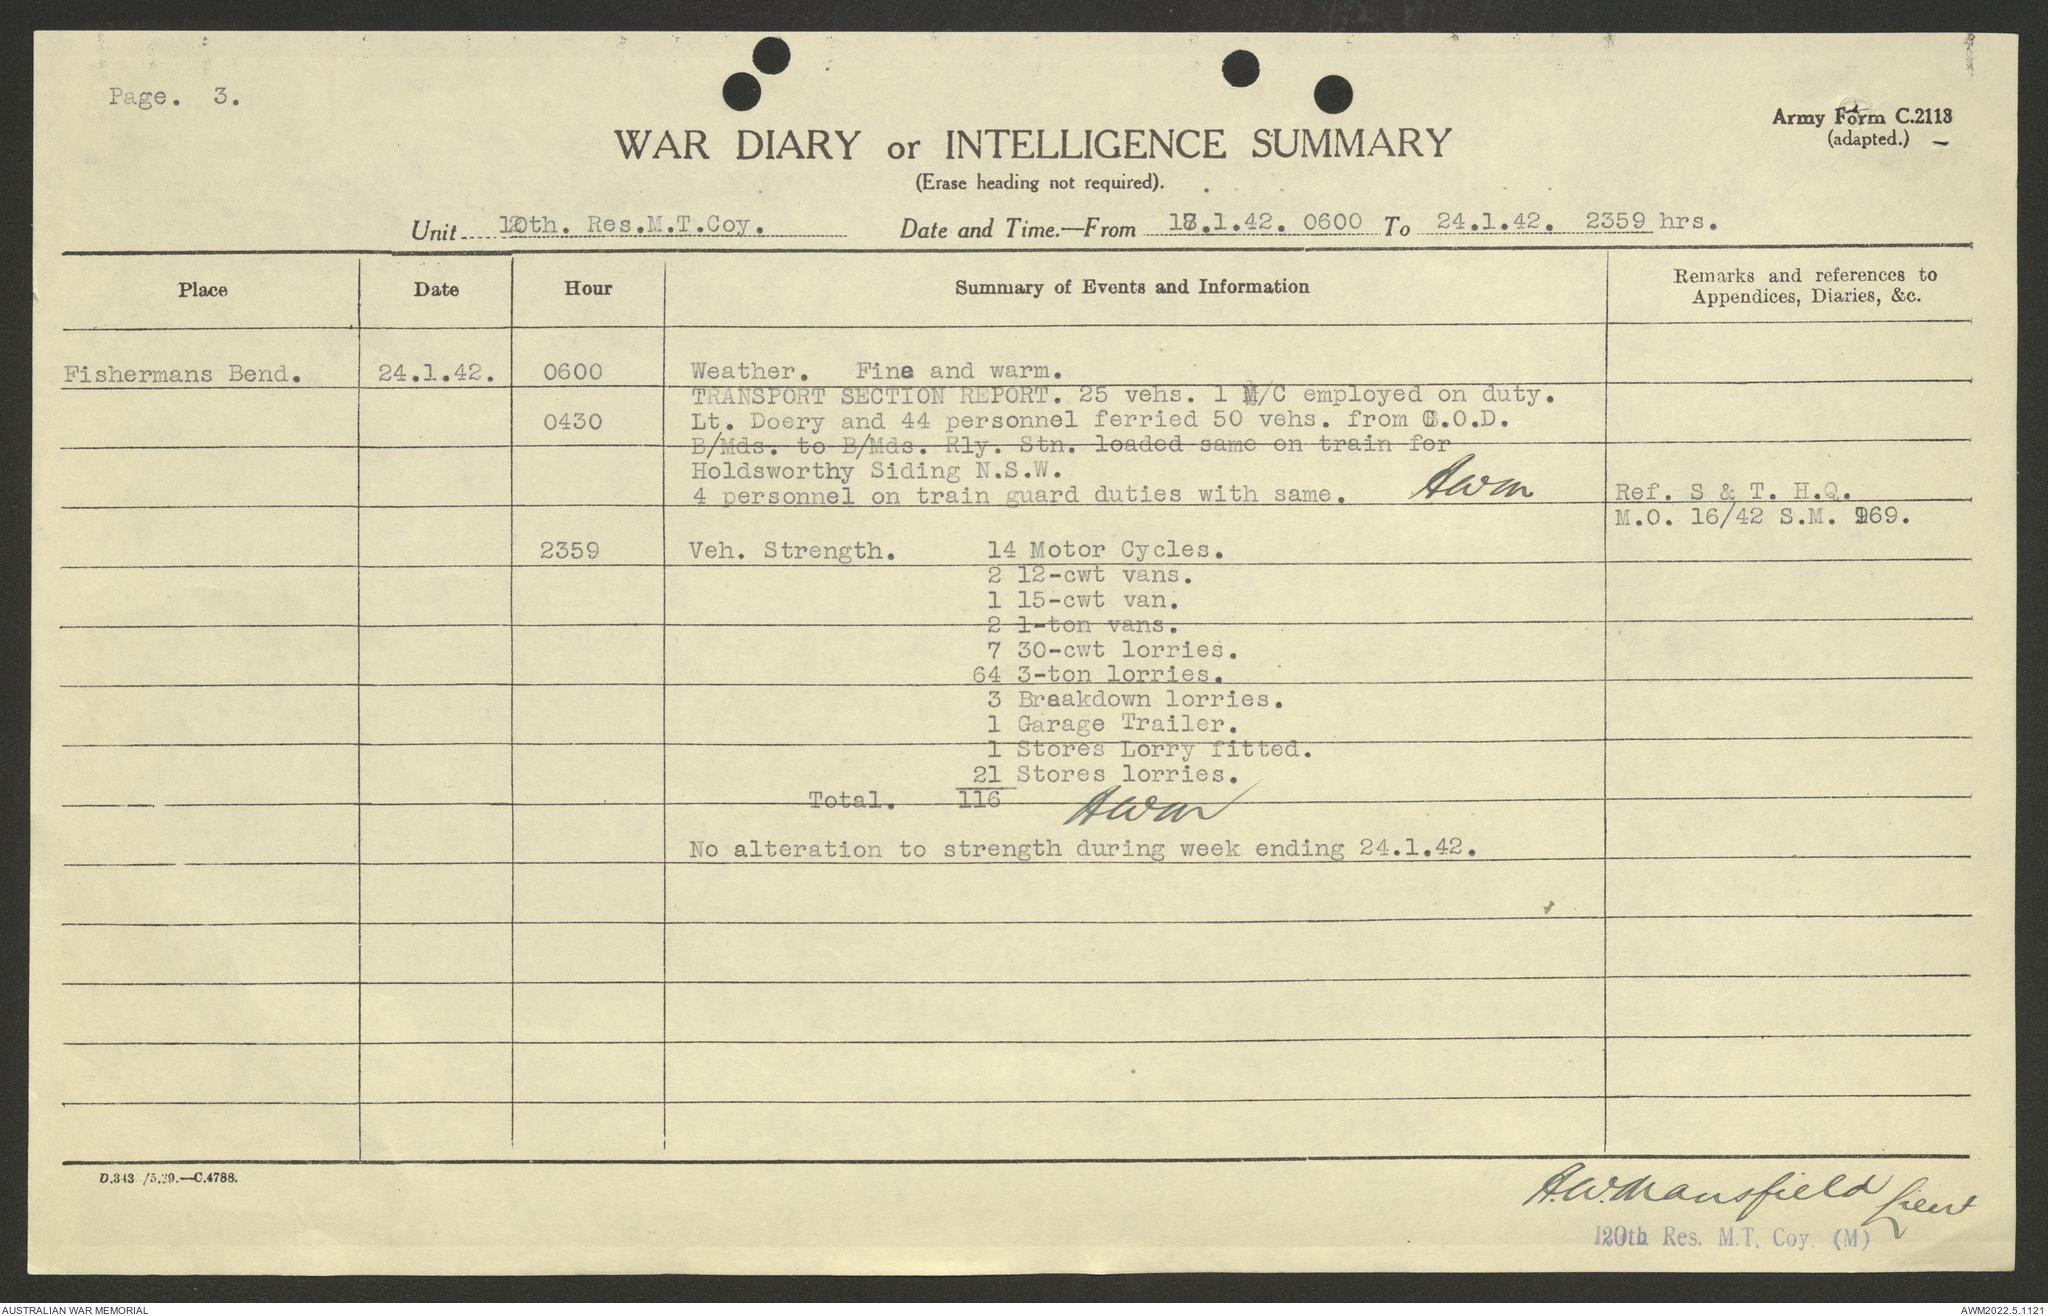 Page. 3.
Army Form C.2118
(adapted.)
WAR DIARY or INTELLIGENCE SUMMARY
(Erase heading not required).
Unit 120th. Res.M.T.Coy. Date and Time.—From 18.1.42. 0600 To 24.1.42. 2359 hrs.
Place Date Hour Summary of Events and Information Remarks and references to
Appendices, Diaries, &c.
Fishermans Bend. 24.1.42. 0600 Weather. Fine and warm.
TRANSPORT SECTION REPORT. 25 vehs. 1 M/C employed on duty.
0430 Lt. Doery and 44 personnel ferried 50 vehs. from .O.D.
B/Mds. to B/Mds. Rly. Stn. loaded same on train for
Holdsworthy Siding N.S.W.
4 personnel on train guard duties with same. AWM Ref. S & T. H.Q.
M.O. 16/42 S.M. 69.
2359 Veh. Strength. 14 Motor Cycles.
2 12-cwt vans.
1 15-cwt van.
2 1-ton vans.
7 30-cwt lorries.
64 3-ton lorries.
3 Breakdown lorries.
1 Garage Trailer.
1 Stores Lorry fitted.
21 Stores lorries.
Total. 116 AWM
No alteration to strength during week ending 24.1.42.
D.343 /5.39.—C.4788.
A.W.Mansfield Lieut
120th Res. M.T. Coy (M)
AUSTRALIAN WAR MEMORIAL
AWM2022.5.1121